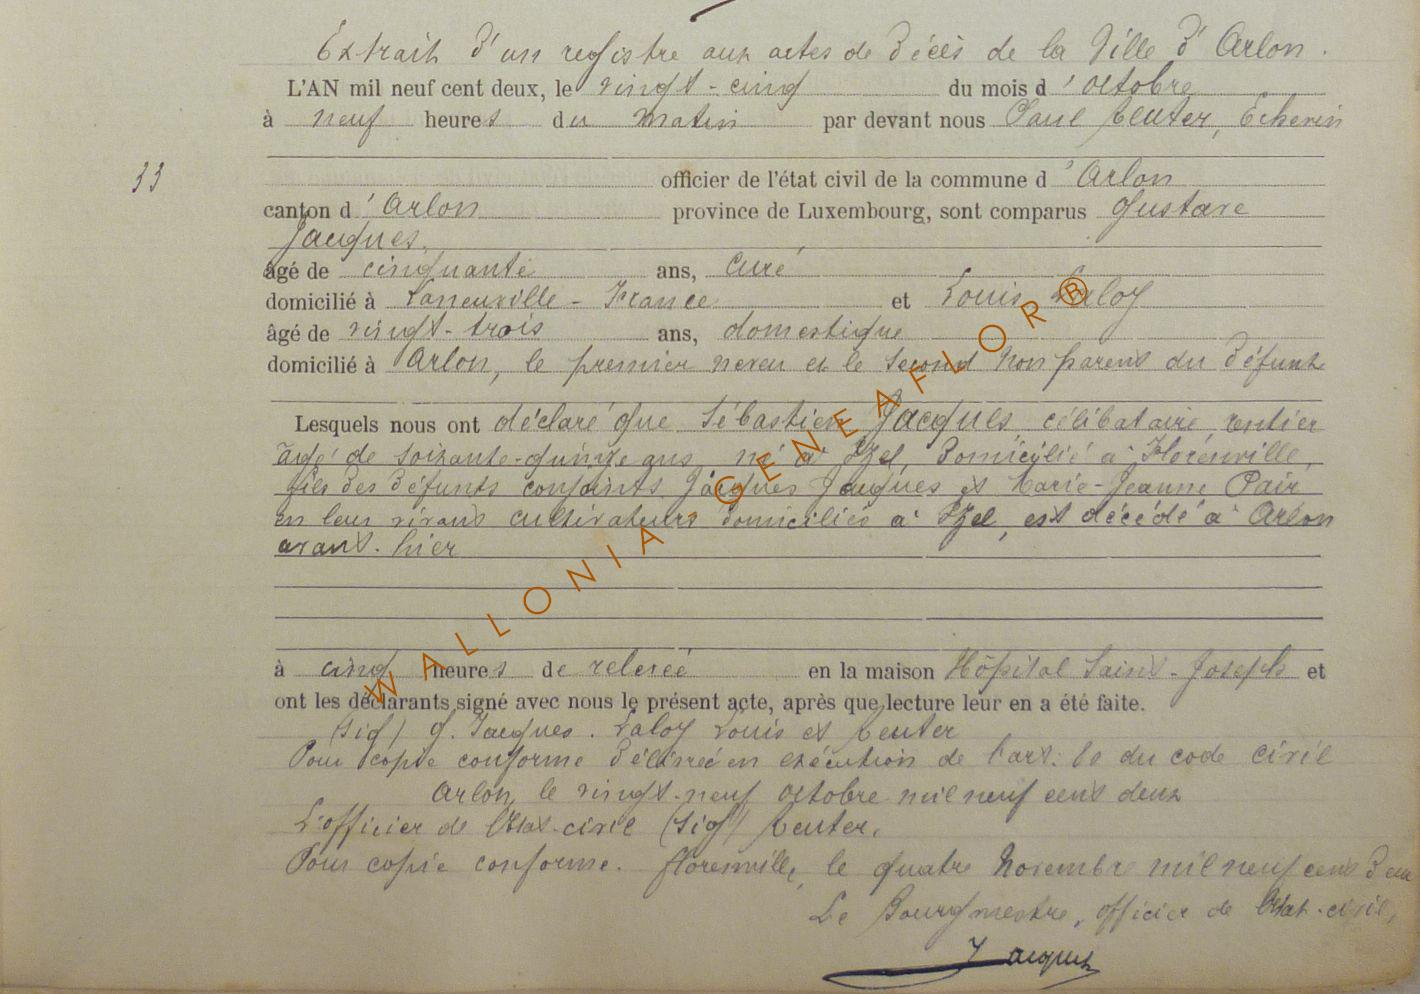 Extrait d'un registre aux actes de décès de la Ville d'Arlon.
L'AN mil neuf cent deux, le vingt-cinq du mois d'octobre
à neuf heures du matin par devant nous Paul Reuter, Echevin
33
officier de l'état civil de la commune d'Arlon
canton d'Arlon province de Luxembourg, sont comparus Gustave
Jacques,
âgé de cinquante ans, curé
domicilié à Laneuville - France et Louis Laloy
âgé de vingt-trois ans, domestique
domicilié à Arlon, le premier neveu et le second non parent du défunt
Lesquels nous ont déclaré que Sébastien Jacques célibataire rentier
âgé de soixante-quinze ans né à Izel, domicilié à Florenville,
fils des défunts conjoints Jacques Jacques et Marie-Jeanne Pair
en leur vivant cultivateurs domiciliés à Izel, est décédé à Arlon
avant-hier
à cinq heures de relevée en la maison Hôpital Saint-Joseph et
ont les déclarants signé avec nous le présent acte, après que lecture leur en a été faite.
(sig) G. Jacques. Laloy Louis et Reuter
Pour copie conforme délivrée en exécution de l'art. 80 du code civil
Arlon, le vingt-neuf octobre mil neuf cent deux
L'officier de l'Etat-civil (sig) Reuter.
Pour copie conforme. Florenville, le quatre Novembre mil neuf cent deux
Le Bourgmestre, officier de l'Etat-civil,
WALLONIA-GENEAFLOR®